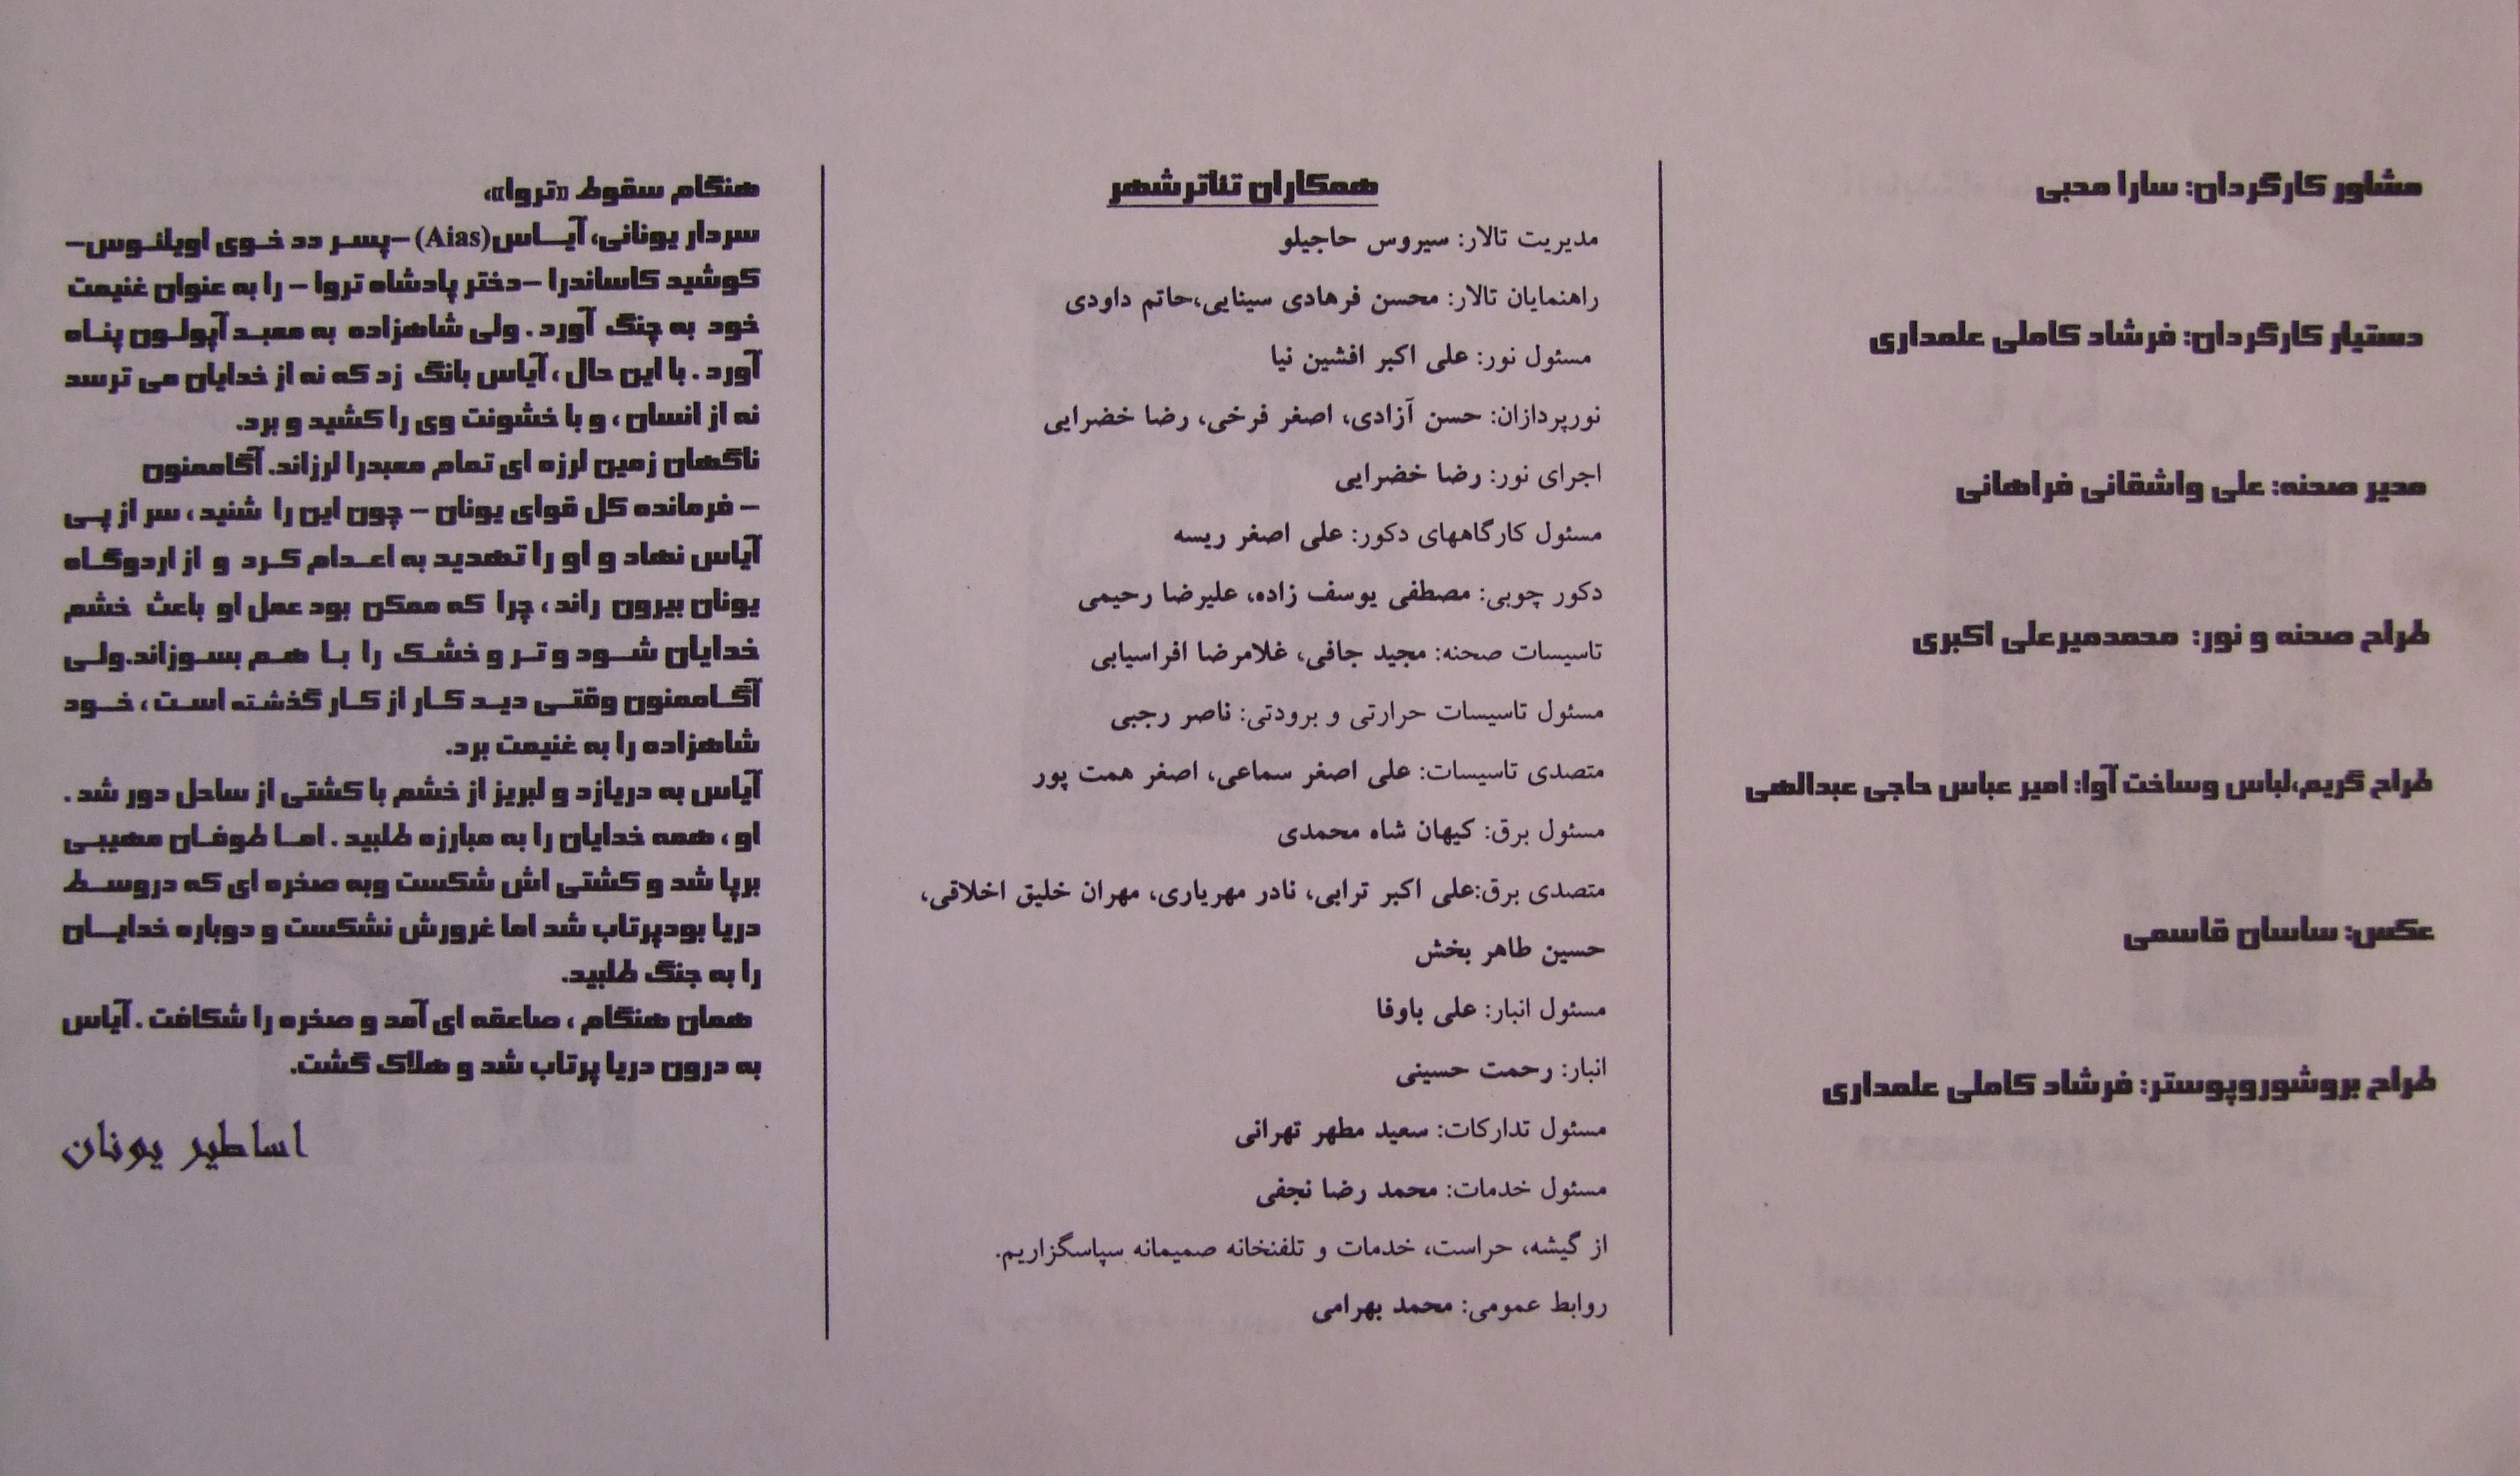 مشاور کارگردان: سارا محبی
دستیار کارگردان: فرشاد کاملی علمداری
مدیر صحنه: علی واشقانی فراهانی
طراح صحنه و نور: محمدمیرعلی اکبری
طراح گریم،لباس وساخت آوا: امیر عباس حاجی عبدالهی
عکس: ساسان قاسمی
طراح بروشوروپوستر: فرشاد کاملی علمداری
همکاران تئاترشهر
مدیریت تالار: سیروس حاجیلو
راهنمایان تالار: محسن فرهادی سینایی،حاتم داودی
مسئول نور: علی اکبر افشین نیا
نورپردازان: حسن آزادی، اصغر فرخی، رضا خضرایی
اجرای نور: رضا خضرایی
مسئول کارگاههای دکور: علی اصغر ریسه
دکور چوبی: مصطفی یوسف زاده، علیرضا رحیمی
تاسیسات صحنه: مجید جافی، غلامرضا افراسیابی
مسئول تاسیسات حرارتی و برودتی: ناصر رجبی
متصدی تاسیسات: علی اصغر سماعی، اصغر همت پور
مسئول برق: کیهان شاه محمدی
متصدی برق:علی اکبر ترابی، نادر مهریاری، مهران خلیق اخلاقی،
حسین طاهر بخش
مسئول انبار: علی باوفا
انبار: رحمت حسینی
مسئول تدارکات: سعید مطهر تهرانی
مسئول خدمات: محمد رضا نجفی
از گیشه، حراست، خدمات و تلفنخانه صمیمانه سپاسگزاریم.
روابط عمومی: محمد بهرامی
هنگام سقوط «تروا»،
سردار یونانی، آیاس(Aias) –پسر دد خوی اویلئوس–
کوشید کاساندرا –دختر پادشاه تروا – را به عنوان غنیمت
خود به چنگ آورد . ولی شاهزاده به معبد آپولون پناه
آورد . با این حال ، آیاس بانگ زد که نه از خدایان می ترسد
نه از انسان ، و با خشونت وی را کشید و برد.
ناگهان زمین لرزه ای تمام معبدرا لرزاند. آگاممنون
– فرمانده کل قوای یونان – چون این را شنید ، سر از پی
آیاس نهاد و او را تهدید به اعدام کرد و از اردوگاه
یونان بیرون راند ، چرا که ممکن بود عمل او باعث خشم
خدایان شود و تر و خشک را با هم بسوزاند.ولی
آگاممنون وقتی دید کار از کار گذشته است ، خود
شاهزاده را به غنیمت برد.
آیاس به دریازد و لبریز از خشم با کشتی از ساحل دور شد .
او ، همه خدایان را به مبارزه طلبید . اما طوفان مهیبی
برپا شد و کشتی اش شکست وبه صخره ای که دروسط
دریا بودپرتاب شد اما غرورش نشکست و دوباره خدایان
را به جنگ طلبید.
همان هنگام ، صاعقه ای آمد و صخره را شکافت . آیاس
به درون دریا پرتاب شد و هلاک گشت.
اساطیر یونان